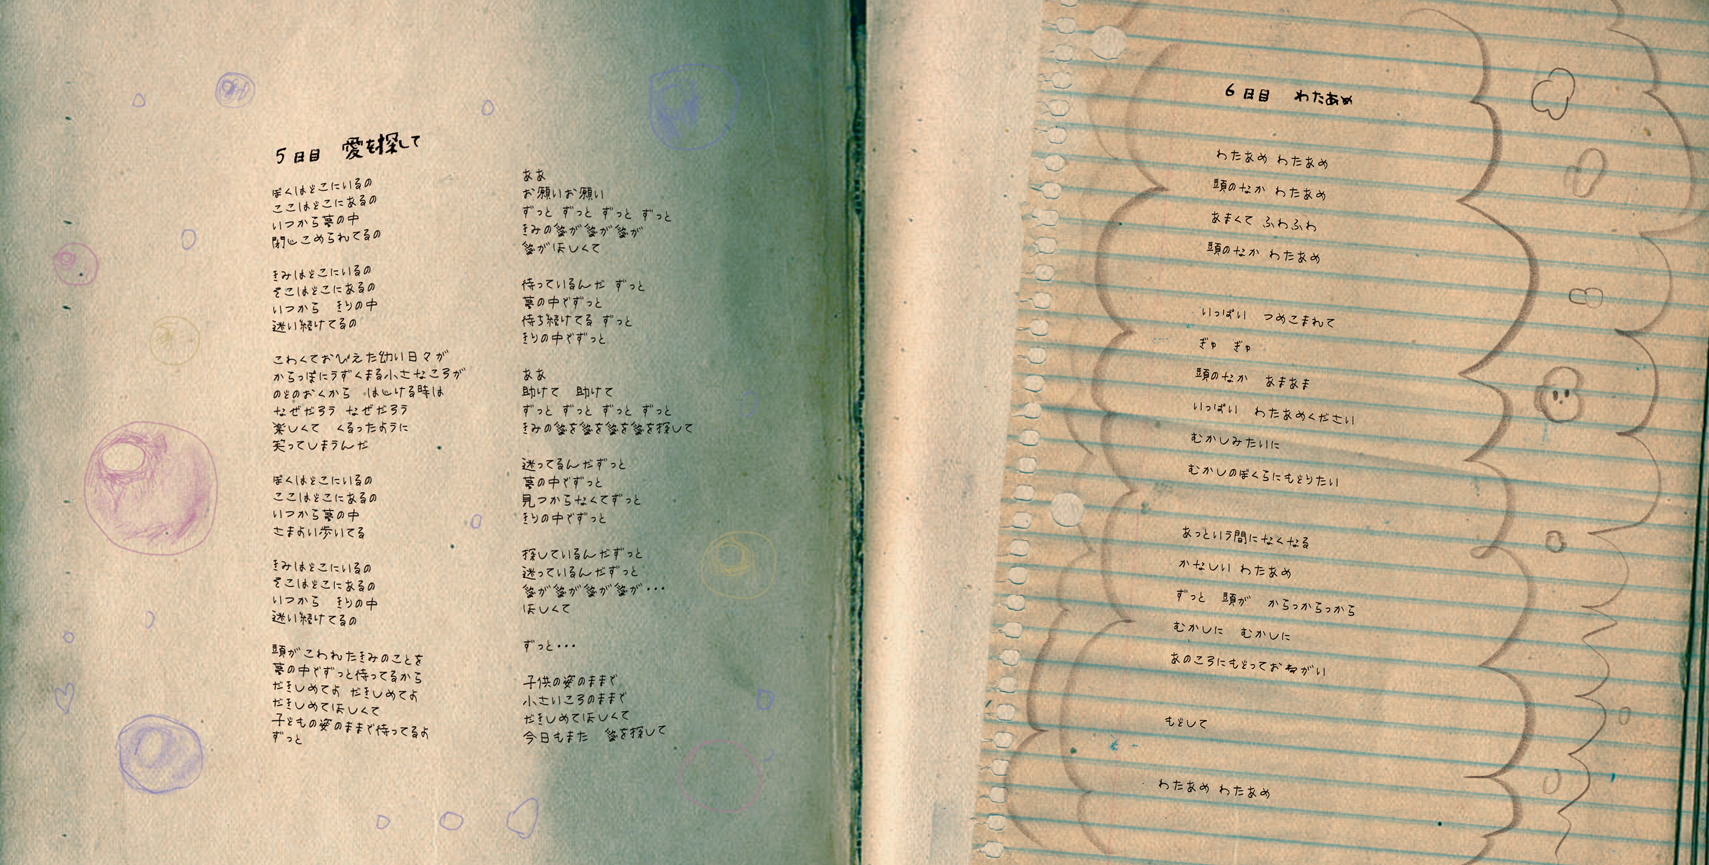 5日目　愛を探して
ぼくはどこにいるの
ここはどこにあるの
いつから夢の中
閉じこめられてるの
きみはどこにいるの
そこはどこにあるの
いつから　きりの中
迷い続けてるの
こわくておびえた幼い日々が
からっぽにうずくまる小さなころが
のどのおくから　はじける時は
なぜだろう なぜだろう
楽しくて　くるったように
笑ってしまうんだ
ぼくはどこにいるの
ここはどこにあるの
いつから夢の中
さまよい歩いてる
きみはどこにいるの
そこはどこにあるの
いつから　きりの中
迷い続けてるの
頭がこわれたきみのことを
夢の中でずっと待ってるから
だきしめてよ だきしめてよ
だきしめてほしくて
子どもの姿のままで待ってるよ
ずっと
ああ
お願いお願い
ずっと ずっと ずっと ずっと
きみの愛が愛が愛が
愛がほしくて
待っているんだ ずっと
夢の中でずっと
待ち続けてる ずっと
きりの中でずっと
ああ
助けて　助けて
ずっと ずっと ずっと ずっと
きみの愛を愛を愛を愛を探して
迷ってるんだずっと
夢の中でずっと
見つからなくてずっと
きりの中でずっと
探しているんだずっと
迷っているんだずっと
愛が愛が愛が愛が・・・
ほしくて
ずっと・・・
子供の姿のままで
小さいころのままで
だきしめてほしくて
今日もまた　愛を探して
6日目　わたあめ
わたあめ わたあめ
頭のなか わたあめ
あまくて ふわふわ
頭のなか わたあめ
いっぱい　つめこまれて
ぎゅ　ぎゅ
頭のなか　あまあま
いっぱい　わたあめください
むかしみたいに
むかしのぼくらにもどりたい
あっという間になくなる
かなしい わたあめ
ずっと　頭が　からっからっから
むかしに　むかしに
あのころにもどっておねがい
もどして
わたあめ わたあめ